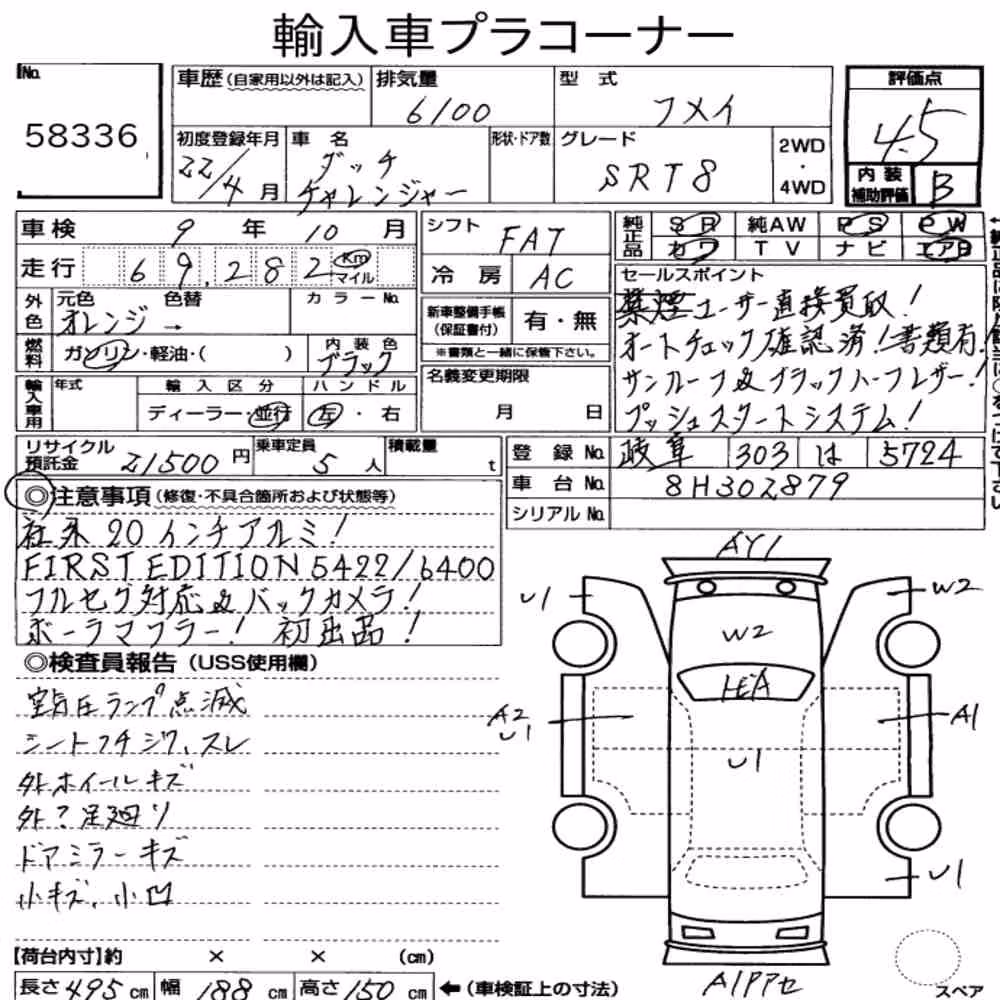 輸入車プラコーナー
No.
58336
車歴(自家用以外は記入)
排気量
6100
型 式
フメイ
評価点
4.5
内装補助評価 B
初度登録年月 22/4月
車 名 ダッチ チャレンジャー
形状・ドア数
グレード SRT8
2WD・4WD
車検 9年 10月
走行 69,282 Km マイル
シフト FAT
冷房 AC
純正品 SR 純AW PS PW
カワ TV ナビ エアB
外色 元色 色替 カラーNo.
オレンジ →
燃料 ガソリン・軽油・( )
内装色 ブラック
新車整備手帳(保証書付) 有・無
※書類と一緒に保管下さい。
セールスポイント
禁煙ユーザー直接買取!
オートチェック確認済!書類有!
サンルーフ&ブラックハーフレザー!
プッシュスタートシステム!
輸入車用 年式 輸入区分 ハンドル
ディーラー・並行 左・右
名義変更期限
月 日
リサイクル預託金 21500円
乗車定員 5人
積載量 t
登録No. 岐阜 303 は 5724
車台No. 8H302879
シリアルNo.
◎注意事項(修復・不具合箇所および状態等)
社外20インチアルミ!
FIRST EDITION 5422/6400
フルセグ対応&バックカメラ!
ボーラマフラー! 初出品!
◎検査員報告(USS使用欄)
空気圧ランプ点滅
シートフチジワ、スレ
外、ホイールキズ
外?足廻り
ドアミラーキズ
小キズ、小凹
AY1
U1
W2
W2
A2
U1
A1
U1
U1
スペア
【荷台内寸】約 × × (cm)
長さ495cm 幅188cm 高さ150cm ←(車検証上の寸法)